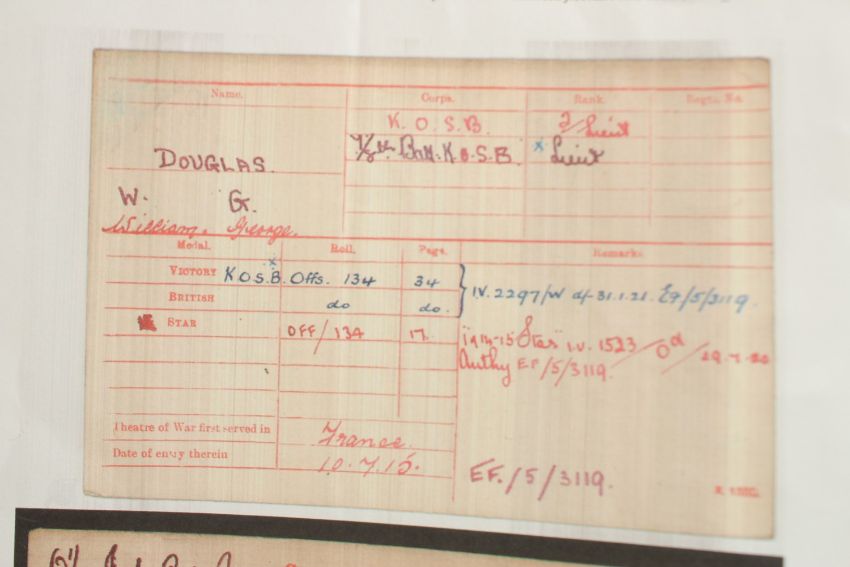 Name. Corps. Rank. Regtl. No.
K. O. S. B. 2/Lieut
7/8th Battn. K.O.S.B. x Lieut
DOUGLAS.
W. G.
William. George.
Medal. Roll. Page. Remarks.
VICTORY x K O S. B. Offs. 134 34 IV. 2297/W df-31.1.21. E9/5/3119.
BRITISH do do.
STAR OFF/134 17. "1914-15 Star" I.V. 1523/
Authy EF/5/3119.
Theatre of War first served in France.
Date of entry therein 10.7.15.
EF./5/3119.